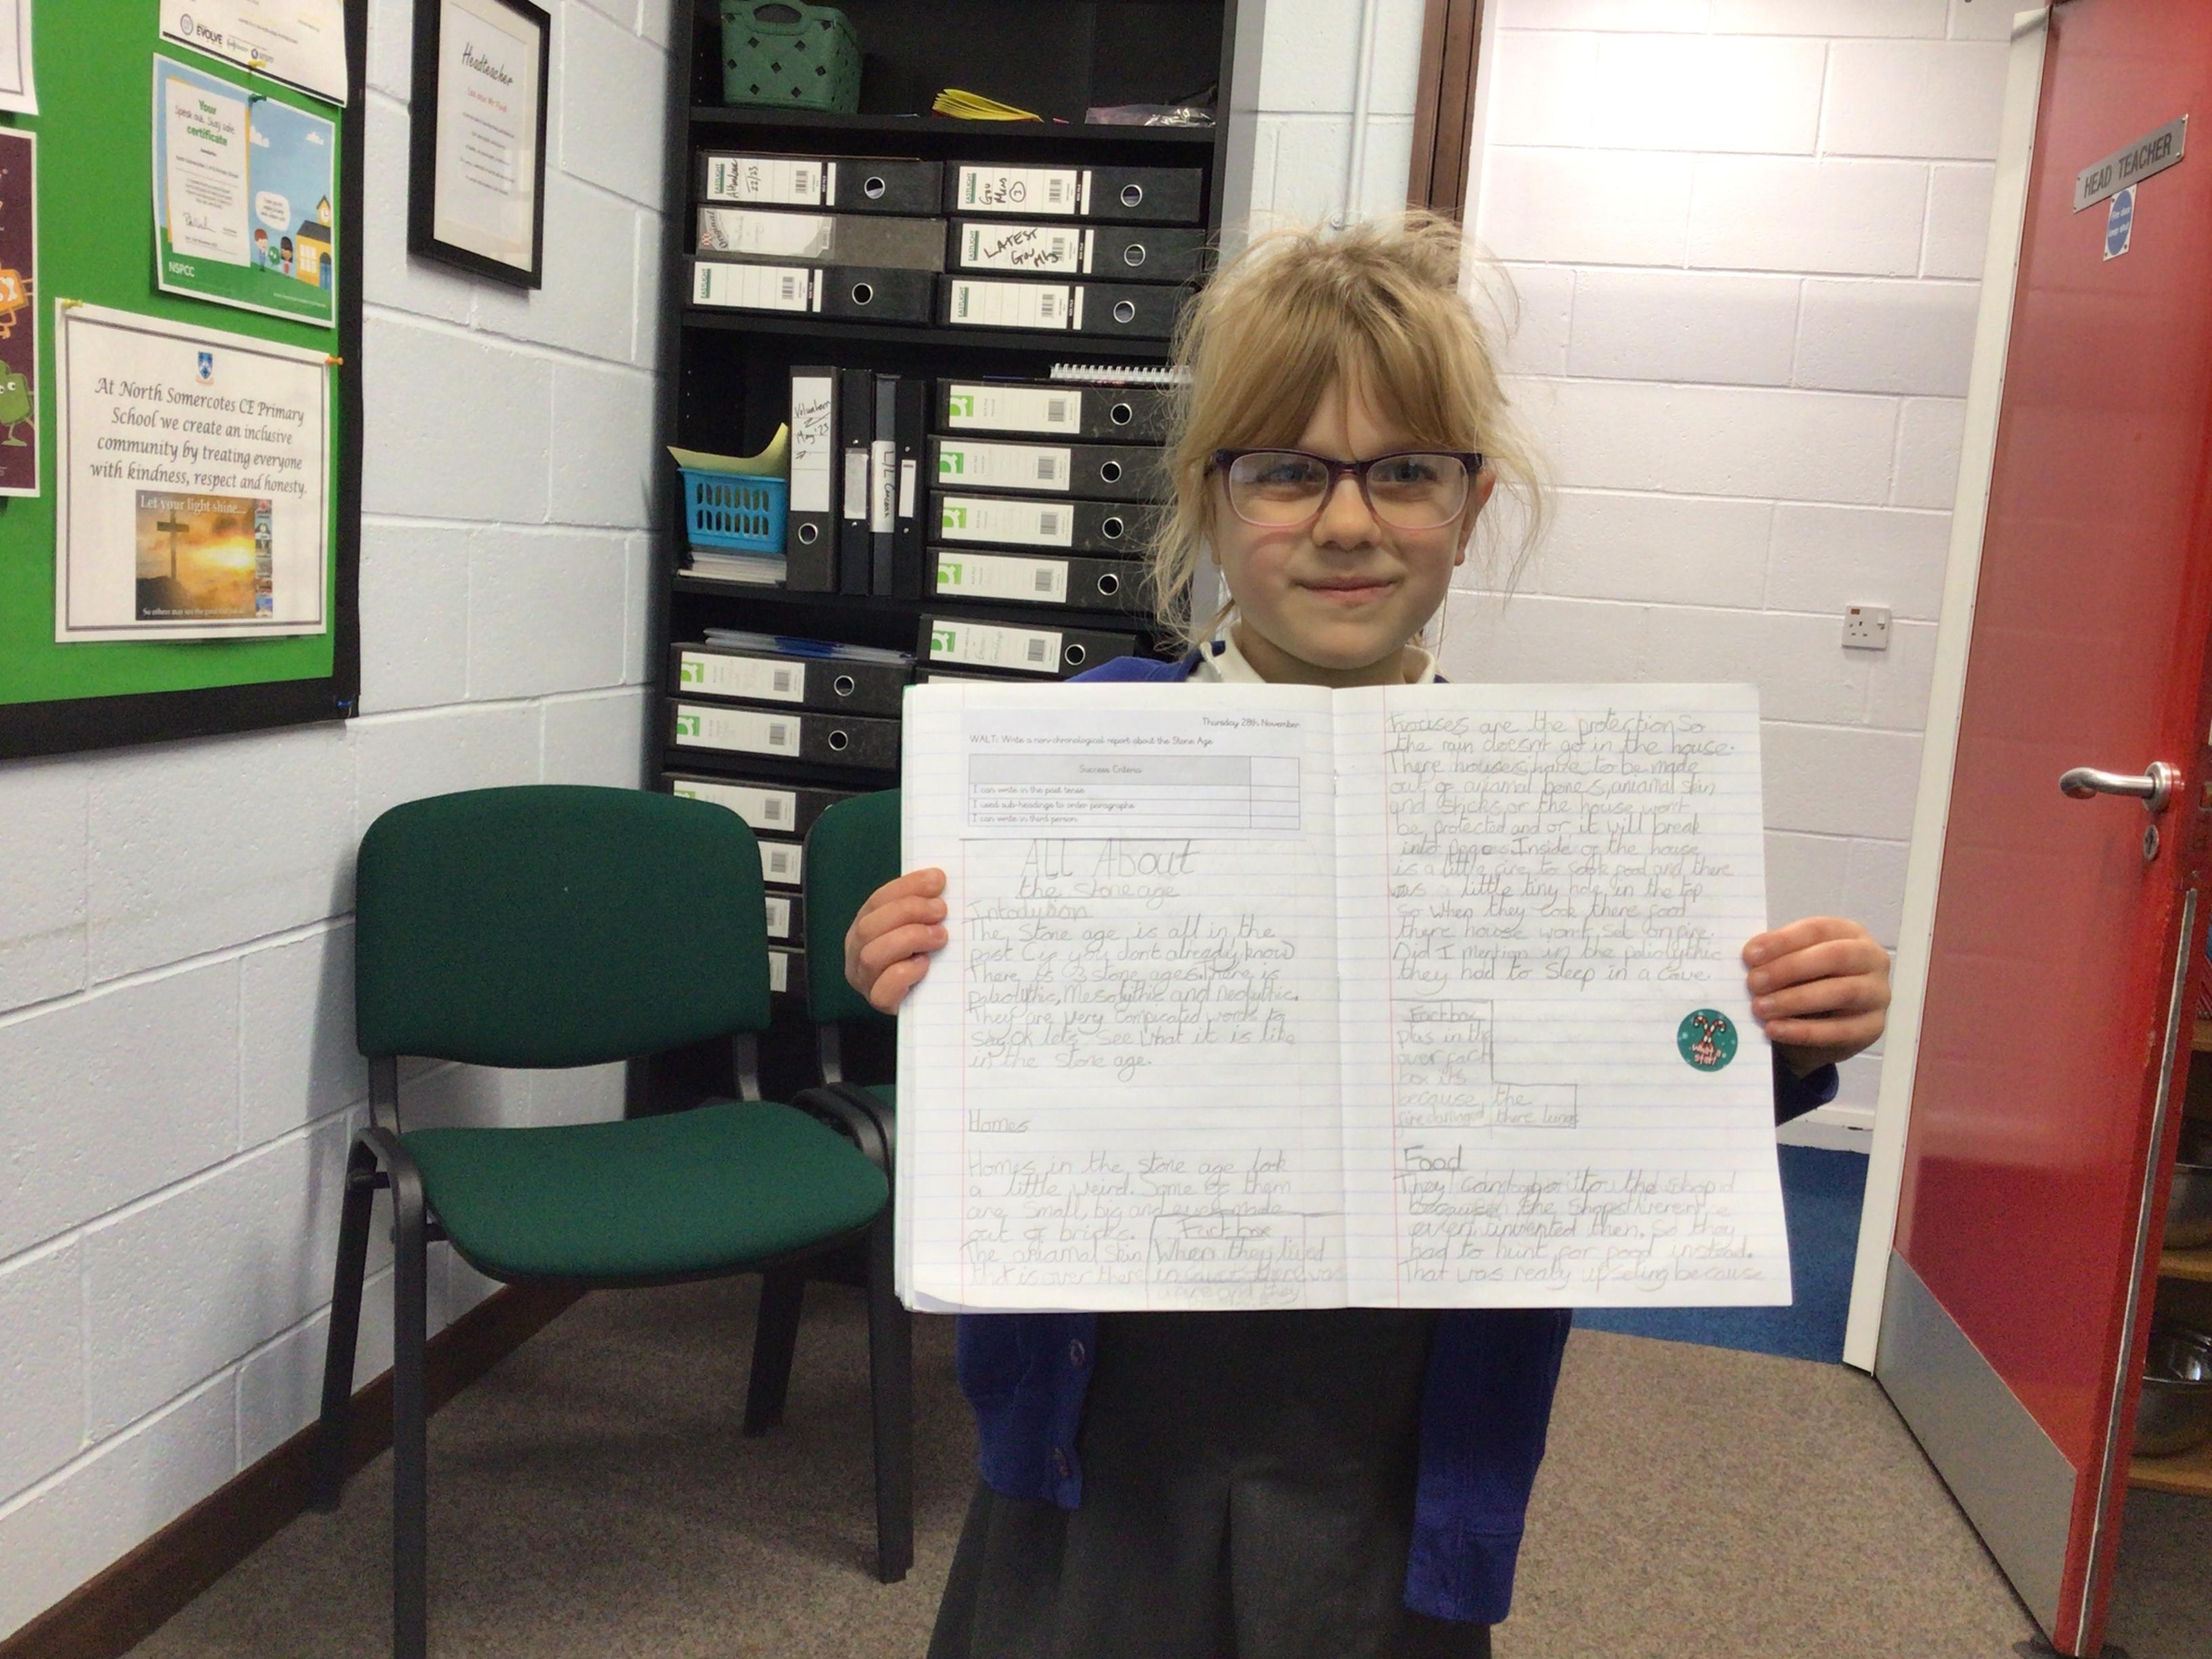 EVOLVE
Your
Speak out. Stay safe.
certificate
NSPCC
At North Somercotes CE Primary
School we create an inclusive
community by treating everyone
with kindness, respect and honesty.
Let your light shine...
So others may see the good
Headteacher
EASTLIGHT
Attendance
22/23
EASTLIGHT
Gov
Mens
2
Original
LATEST
Gov
EASTLIGHT
EASTLIGHT
Volunteers
May '23
HEAD TEACHER
Thursday 28th November
WALT: Write a non-chronological report about the Stone Age
Success Criteria
I can write in the past tense
I used sub-headings to order paragraphs
I can write in third person
All About
the stone age
Intodution
The Stone age is all in the
past (if you don't already know)
There is 3 stone ages. There is
paliolythic, Mesolythic and neolythic.
They are very complicated words to
say. Ok lets see what it is like
in the stone age.
Homes
Homes in the stone age look
a little weird. Some of them
are small, big and even made
out of bricks.
The aniamal skin
that is over there
Fact box
When they lived
in caves there was
and they
Houses are the protection so
the rain doesn't get in the house.
There houses have to be made
out of aniamal bones, aniamal skin
and sticks or the house wont
be protected and or it will break
into Inside of the house
is a little fire to cook food and there
is a little tiny hole in the top
so when they cook there food
there house won't set on fire.
Did I mention in the paliolythic
they had to sleep in a cave.
Fact box
plus in the
over fact
box its
because the
fire damaged there lungs
what a
star!
Food
They go to the shop
because the shops weren't
even invented then. So they
had to hunt for food instead.
That was really upseting because